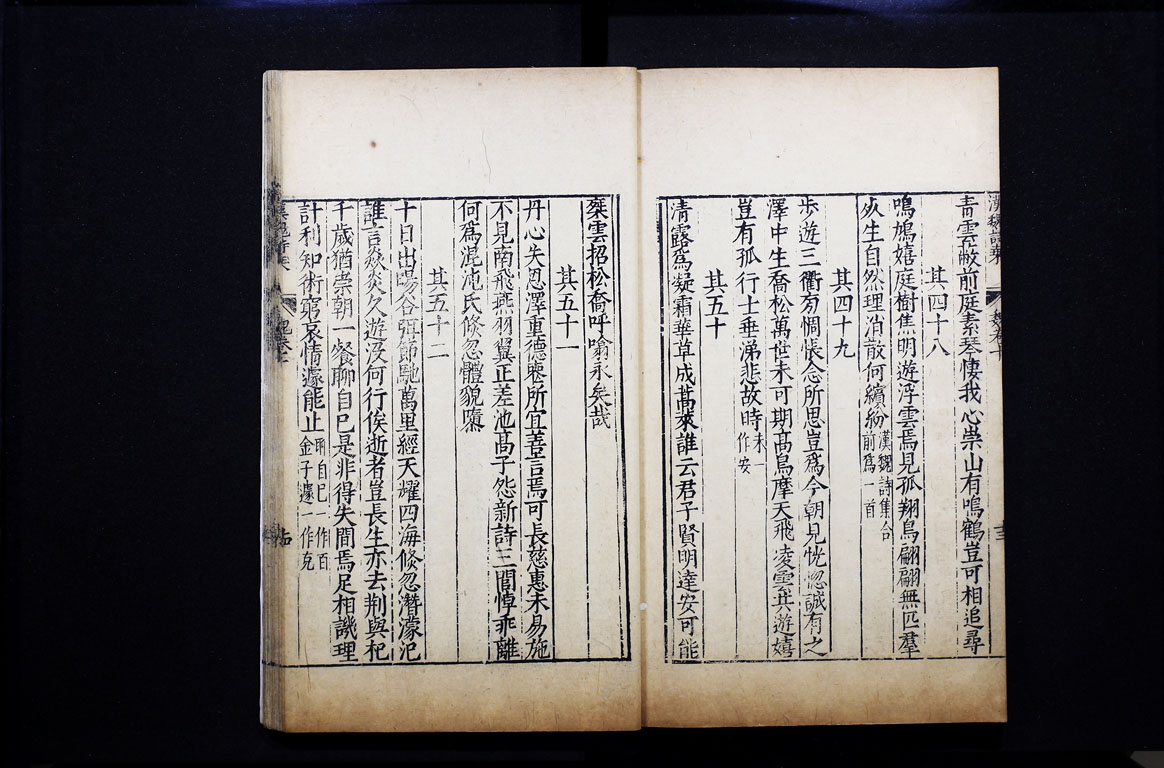 青雲蔽前庭素琴悽我心崇山有鳴鶴豈可相追尋
其四十八
鳴鳩嬉庭樹焦明遊浮雲焉見孤翔鳥翩翩無匹羣
死生自然理消散何繽紛漢魏詩集合
前爲一首
其四十九
步遊三衢旁惆悵念所思豈爲今朝見恍惚誠有之
澤中生喬松萬世未可期高鳥摩天飛凌雲共遊嬉
豈有孤行士垂涕悲故時末一
作安
其五十
清露爲凝霜華草成蒿萊誰云君子賢明達安可能
椉雲招松喬呼噏永矣哉
其五十一
丹心失恩澤重德喪所宜善言焉可長慈惠未易施
不見南飛燕羽翼正差池高子怨新詩三閭悼乖離
何爲混沌氏倏忽體貌隳
其五十二
十日出暘谷弭節馳萬里經天耀四海倏忽潛濛汜
誰言焱炎久遊沒何行俟逝者豈長生亦去荆與杞
千歲猶崇朝一餐聊自已是非得失間焉足相譏理
計利知術窮哀情遽能止聊自已一作百
金子遽一作克